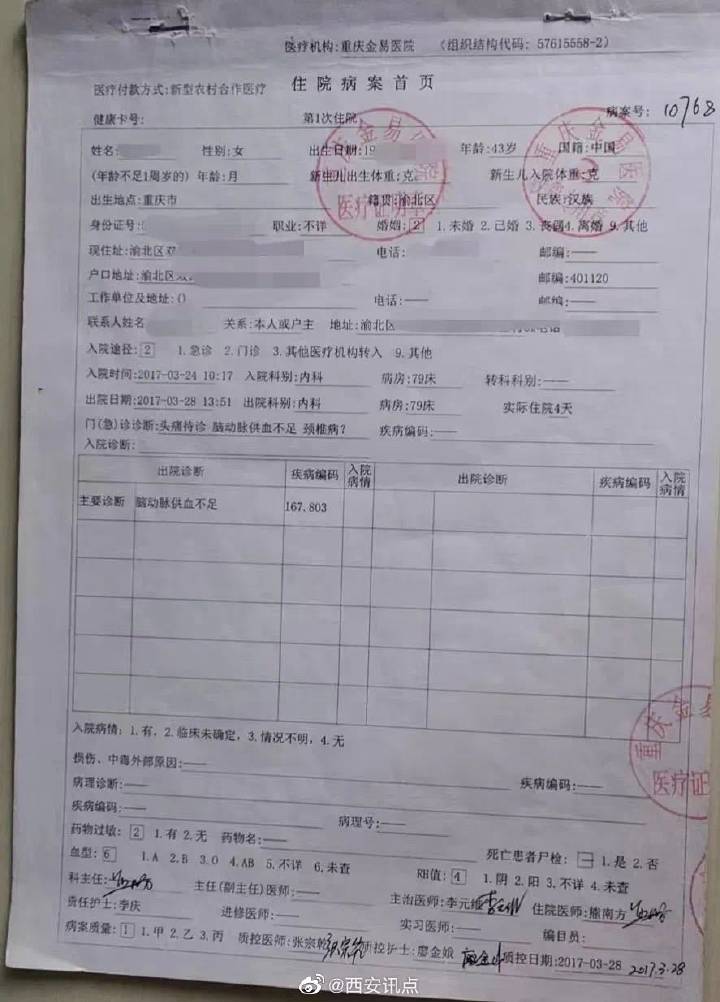 医疗机构:重庆金易医院 (组织结构代码: 57615558-2)
医疗付款方式:新型农村合作医疗 住院病案首页
健康卡号: 第1次住院 病案号: 10768
姓名: 性别:女 出生日期:19 年龄:43岁 国籍:中国
(年龄不足1周岁的) 年龄:月 新生儿出生体重:克 新生儿入院体重:克
出生地点:重庆市 籍贯:渝北区 民族:汉族
身份证号: 职业:不详 婚姻: 2 1.未婚 2.已婚 3.丧偶4.离婚 9.其他
现住址:渝北区双 电话: 邮编:——
户口地址:渝北区双 邮编:401120
工作单位及地址:() 电话:—— 邮编:——
联系人姓名 关系:本人或户主 地址:渝北区 电话
入院途径: 2 1.急诊 2.门诊 3.其他医疗机构转入 9.其他
入院时间:2017-03-24 10:17 入院科别:内科 病房:79床 转科科别:——
出院日期:2017-03-28 13:51 出院科别:内科 病房:79床 实际住院4天
门(急)诊诊断:头痛待诊 脑动脉供血不足 颈椎病? 疾病编码:——
入院诊断:
出院诊断 疾病编码 入院病情 出院诊断 疾病编码 入院病情
主要诊断 脑动脉供血不足 167.803
入院病情: 1.有, 2.临床未确定, 3.情况不明, 4.无
损伤、中毒外部原因:——
病理诊断:—— 疾病编码:——
疾病编码:—— 病理号:——
药物过敏: 2 1.有 2.无 药物名:——
死亡患者尸检: — 1.是 2.否
血型: 6 1.A 2.B 3.O 4.AB 5.不详 6.未查 RH值: 4 1.阴 2.阳 3.不详 4.未查
科主任: 主任(副主任)医师:—— 主治医师:李元 住院医师: 南方
责任护士:李庆 进修医师:—— 实习医师:—— 编目员:
病案质量: 1 1.甲 2.乙 3.丙 质控医师:张宗 质控护士:廖金娥 质控日期:2017-03-28 2017.3.28
重庆金易医院
医疗证明
重庆金易医院
重庆金易
医疗证
@西安讯点